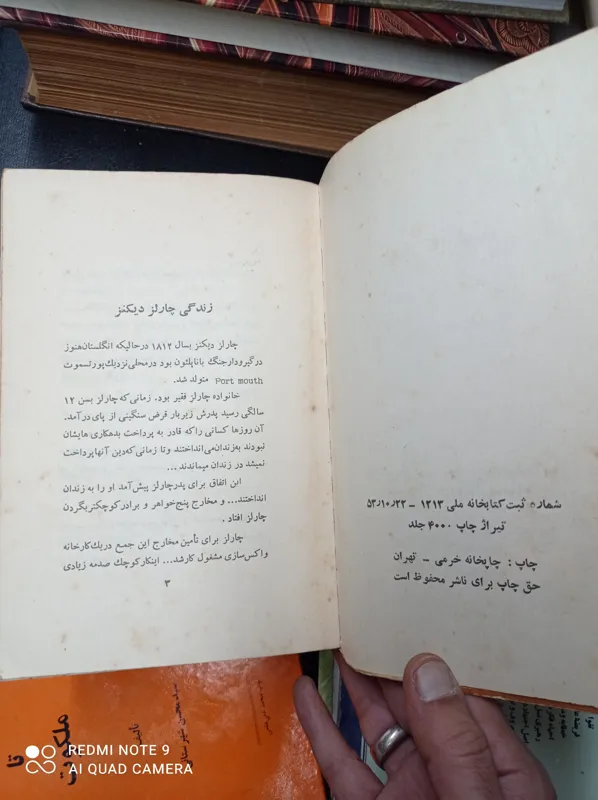 شماره ثبت کتابخانه ملی ۱۲۱۳ - ۵۳/۱۰/۲۲
تیراژ چاپ ۴۰۰۰ جلد
چاپ : چاپخانه خرمی - تهران
حق چاپ برای ناشر محفوظ است
زندگی چارلز دیکنز
چارلز دیکنز بسال ۱۸۱۲ درحالیکه انگلستان هنوز
درگیرودار جنگ با ناپلئون بود درمحلی نزدیك پورتسموت
Port mouth متولد شد.
خانواده چارلز فقیر بود. زمانی که چارلز بسن ۱۲
سالگی رسید پدرش زیربار قرض سنگینی از پای درآمد.
آن روزها کسانی راکه قادر به پرداخت بدهکاری هایشان
نبودند به زندان می انداختند وتا زمانی که دین آنها پرداخت
نمیشد در زندان میماندند ...
این اتفاق برای پدرچارلز پیش آمد او را به زندان
انداختند... و مخارج پنج خواهر و برادر کوچکتر بگردن
چارلز افتاد .
چارلز برای تأمین مخارج این جمع دریك کارخانه
واکس سازی مشغول کارشد... اینکار کوچك صدمه زیادی
۳
ملکوت
تا
REDMI NOTE 9
AI QUAD CAMERA